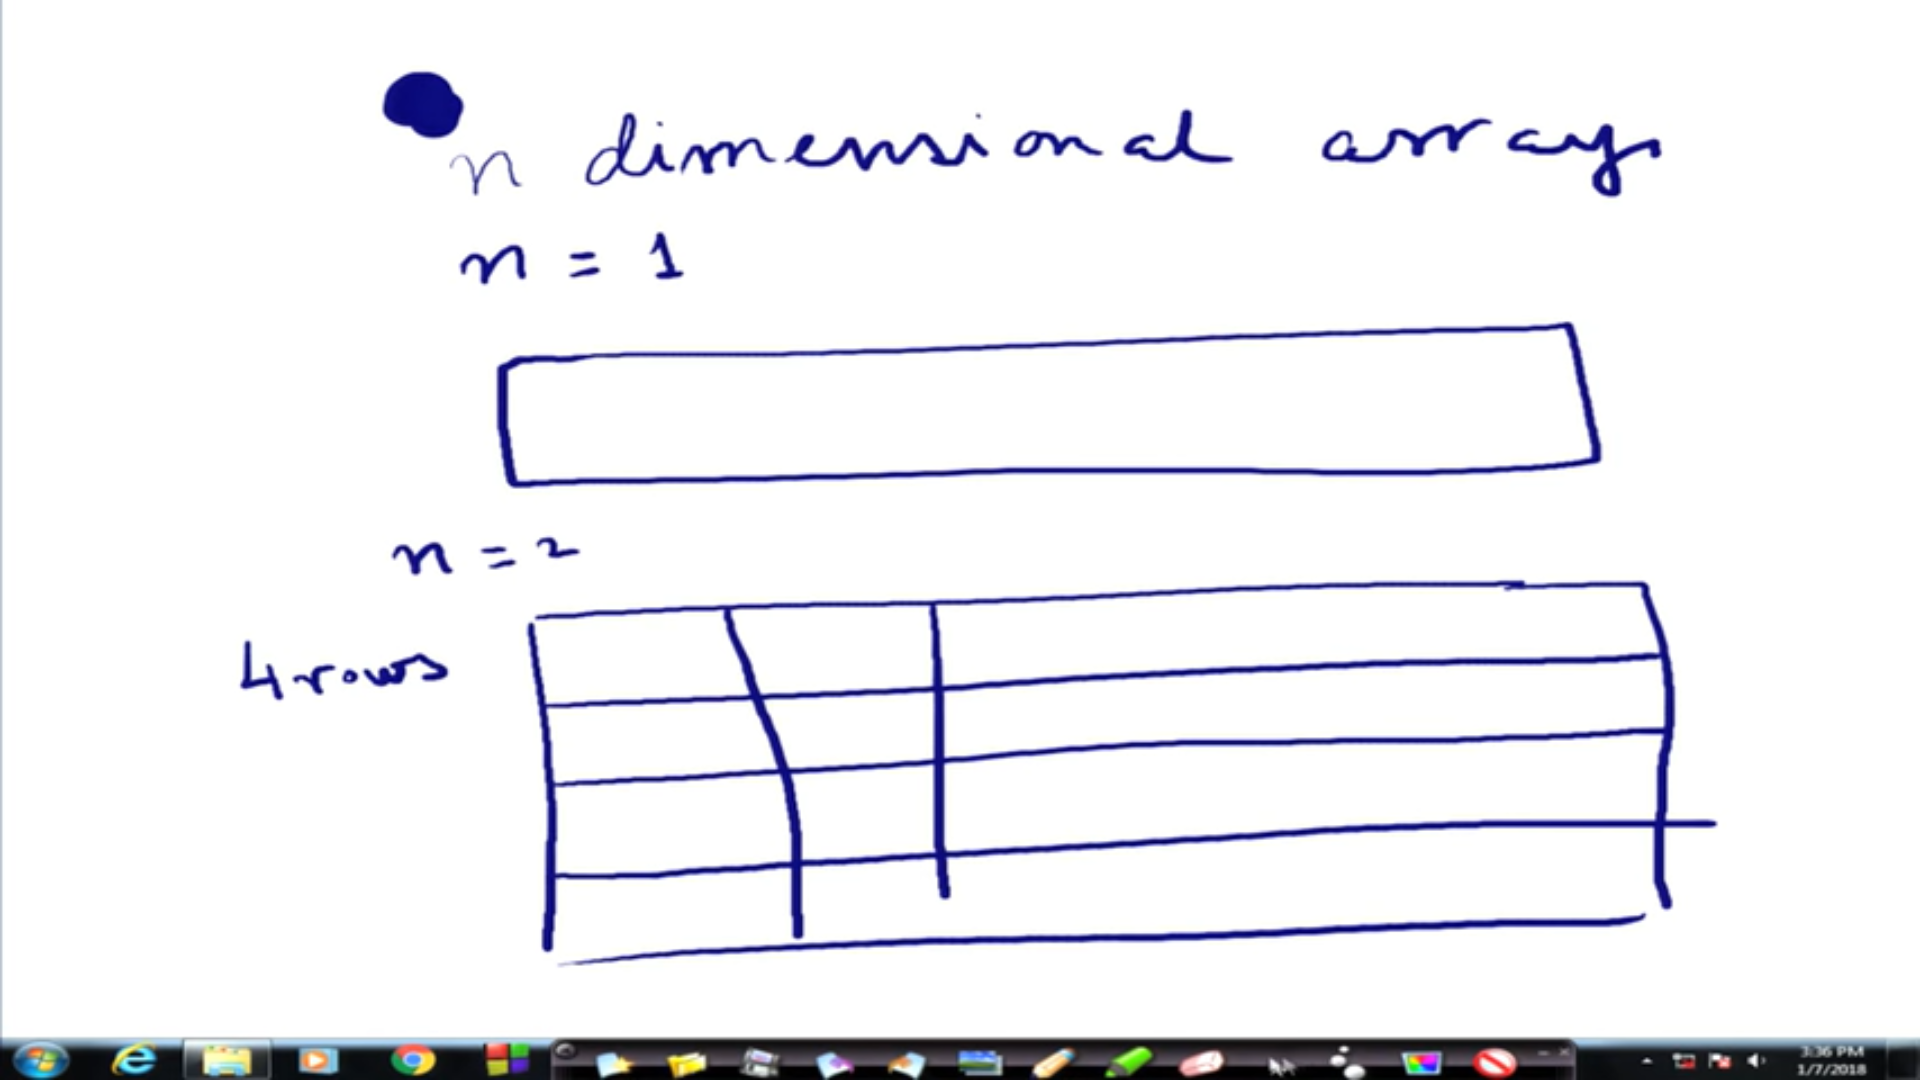 n dimensional array
n = 1
n = 2
4 rows
3:36 PM
1/7/2018